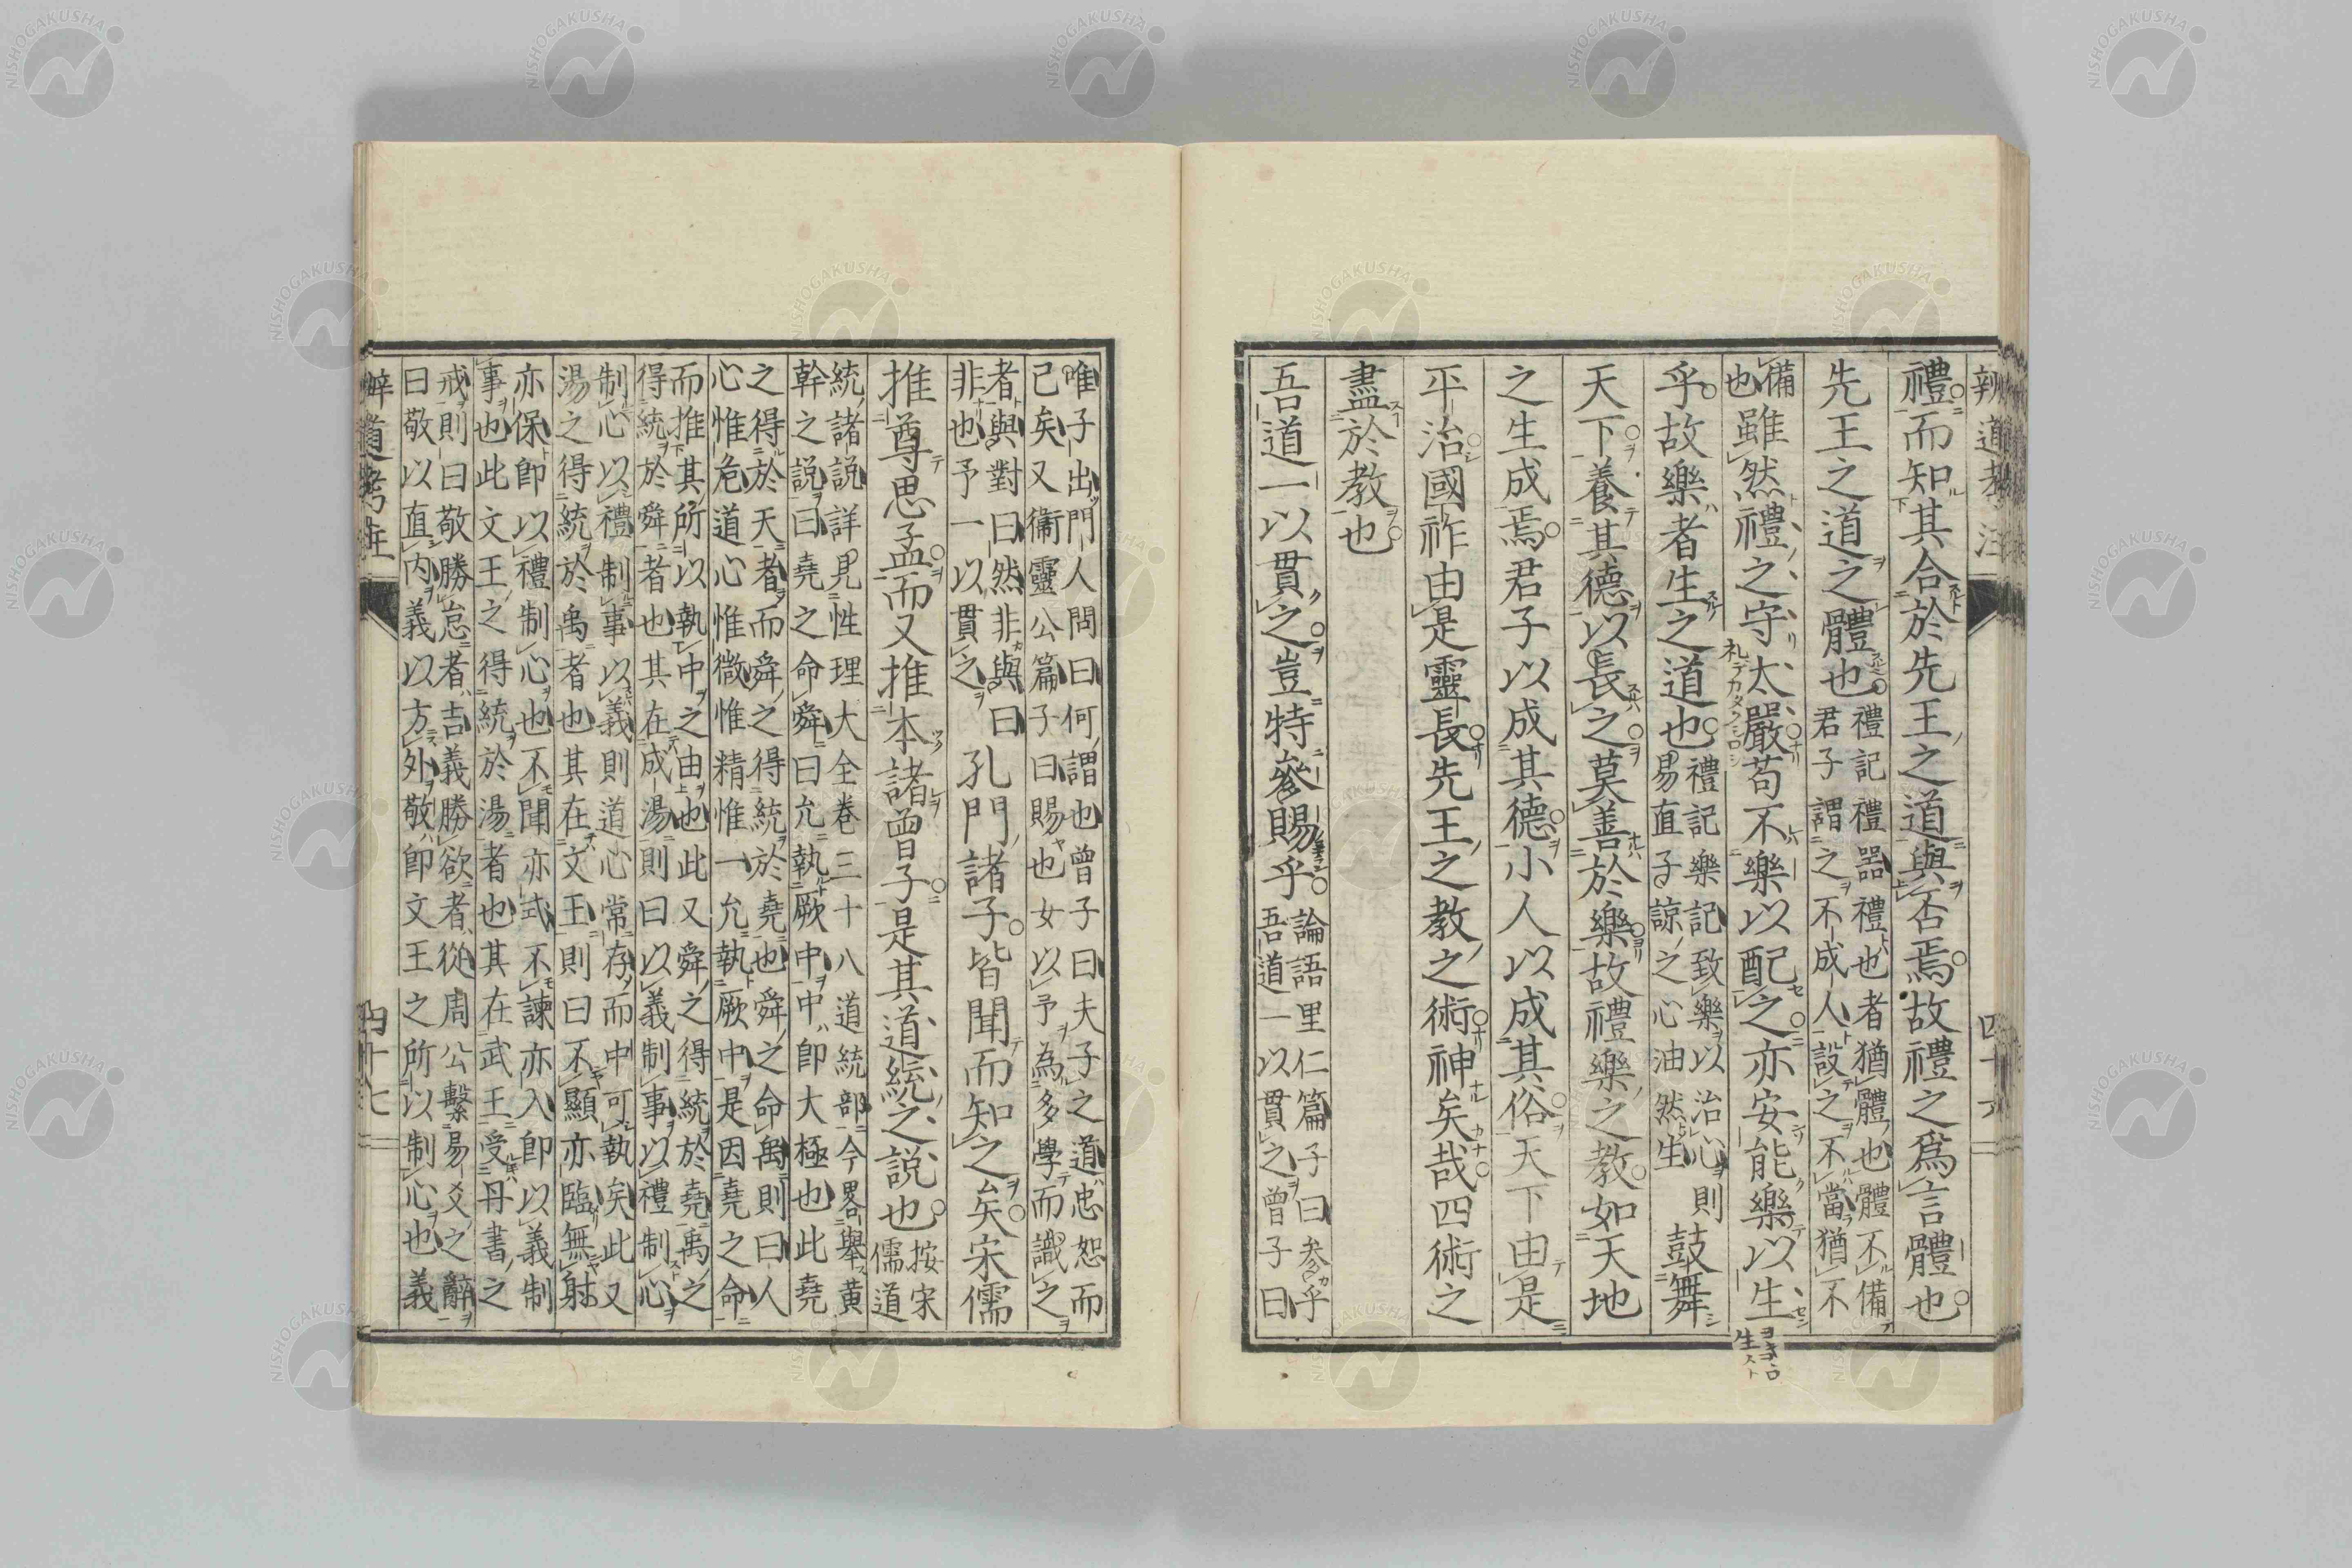 辨道考注
四十六
禮而知其合於先王之道與否焉故禮之爲言體也
先王之道之體也禮記禮器禮也者猶體也體不備
君子謂之不成人設之不當猶不
備
也雖然禮之守太嚴苟不樂以配之亦安能樂以生
礼デカタクシロシ
乎故樂者生之道也禮記樂記致樂以治心則
易直子諒之心油然生
鼓舞
天下養其德以長之莫善於樂故禮樂之教如天地
之生成焉君子以成其德小人以成其俗天下由是
平治國祚由是靈長先王之教之術神矣哉四術之
盡於教也
吾道一以貫之豈特參賜乎論語里仁篇子曰參乎
吾道一以貫之曾子曰
唯子出門人問曰何謂也曾子曰夫子之道忠恕而
已矣又衞靈公篇子曰賜也女以予為多學而識之
者與對曰然非與曰
非也予一以貫之
孔門諸子皆聞而知之矣宋儒
推尊思孟而又推本諸曾子是其道統之說也按宋
儒道
統諸說詳見性理大全卷三十八道統部今畧舉黃
幹之說曰堯之命舜曰允執厥中中即大極也此堯
之得於天者而舜之得統於堯也舜之命禹則曰人
心惟危道心惟微惟精惟一允執厥中是因堯之命
而推其所以執中之由也此又舜之得統於堯禹之
得統於舜者也其在成湯則曰以義制事以禮制心
制心以禮制事以義則道心常存而中可執矣此又
湯之得統於禹者也其在文王則曰不顯亦臨無射
亦保即以禮制心也不聞亦式不諫亦入即以義制
事也此文王之得統於湯者也其在武王受丹書之
戒則曰敬勝怠者吉義勝欲者從周公繫易爻之辭
曰敬以直內義以方外敬即文王之所以制心也義
辨道考注
四十七